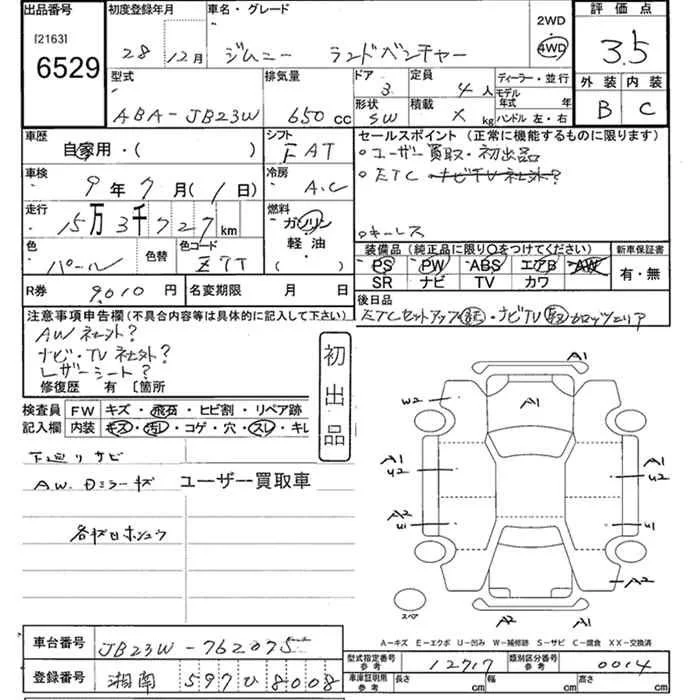 出品番号 初度登録年月 車名・グレード 2WD 4WD 評価点
[2163]
6529 28 12月 ジムニー ランドベンチャー 3.5
型式 排気量 ドア 定員 ディーラー・並行 外装 内装
ABA-JB23W 650 cc 3 4人 モデル年式 年 B C
形状 積載 ハンドル 左・右
SW X kg
車歴 シフト セールスポイント (正常に機能するものに限ります)
自家用・( ) FAT ○ユーザー買取・初出品
車検 冷房 ○ETC ナビTV社外?
9年7月(1日) A.C
走行 燃料 ○キーレス
15万3千727km ガソリン
色 色替 色コード 軽油 装備品 (純正品に限り○をつけてください) 新車保証書
パール Z7T ( ) PS PW ABS エアB AW 有・無
SR ナビ TV カワ
R券 9,010円 名変期限 月 日 後日品
注意事項申告欄(不具合内容等は具体的に記入して下さい) ETCセットアップ
AW社外?
ナビ・TV社外?
レザーシート?
修復歴 有 〔箇所
初出品
検査員 FW キズ・飛石・ヒビ割・リペア跡
記入欄 内装 キズ・汚レ・コゲ・穴・スレ・キレ
下廻りサビ
A.W. Dミラーキズ ユーザー買取車
各キズ凹ホシュウ
A1
W2 A1
A1 U2 A1 U2
A2 U1 U1
A2
スペア A2 A1
A-キズ E-エクボ U-凹み W-補修跡 S-サビ C-腐食 XX-交換済
車台番号 JB23W-762075
型式指定番号 参考 12717 類別区分番号 参考 0014
登録番号 湘南 597ひ8008
車庫証明用 参考 長さ cm 幅 cm 高さ cm